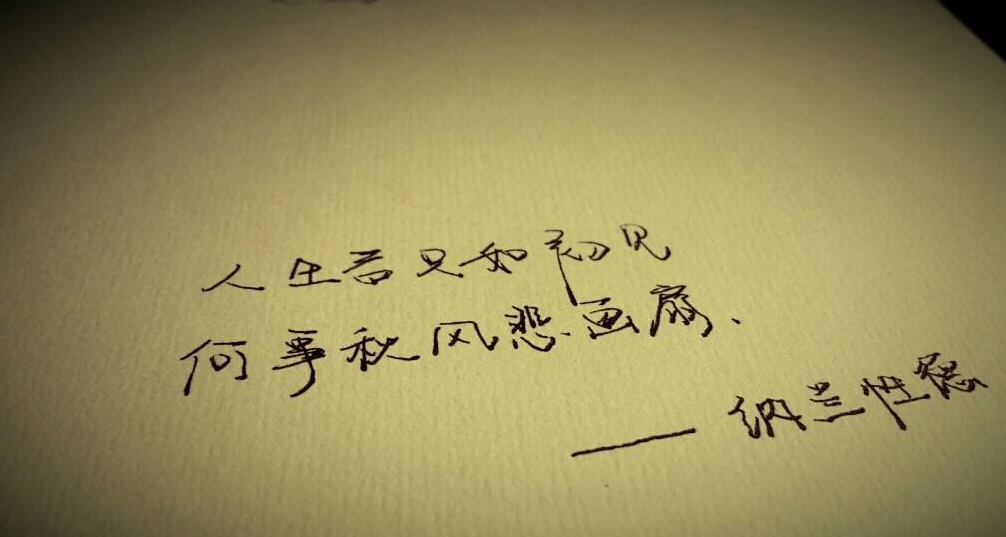 人生若只如初见
何事秋风悲画扇、
——纳兰性德